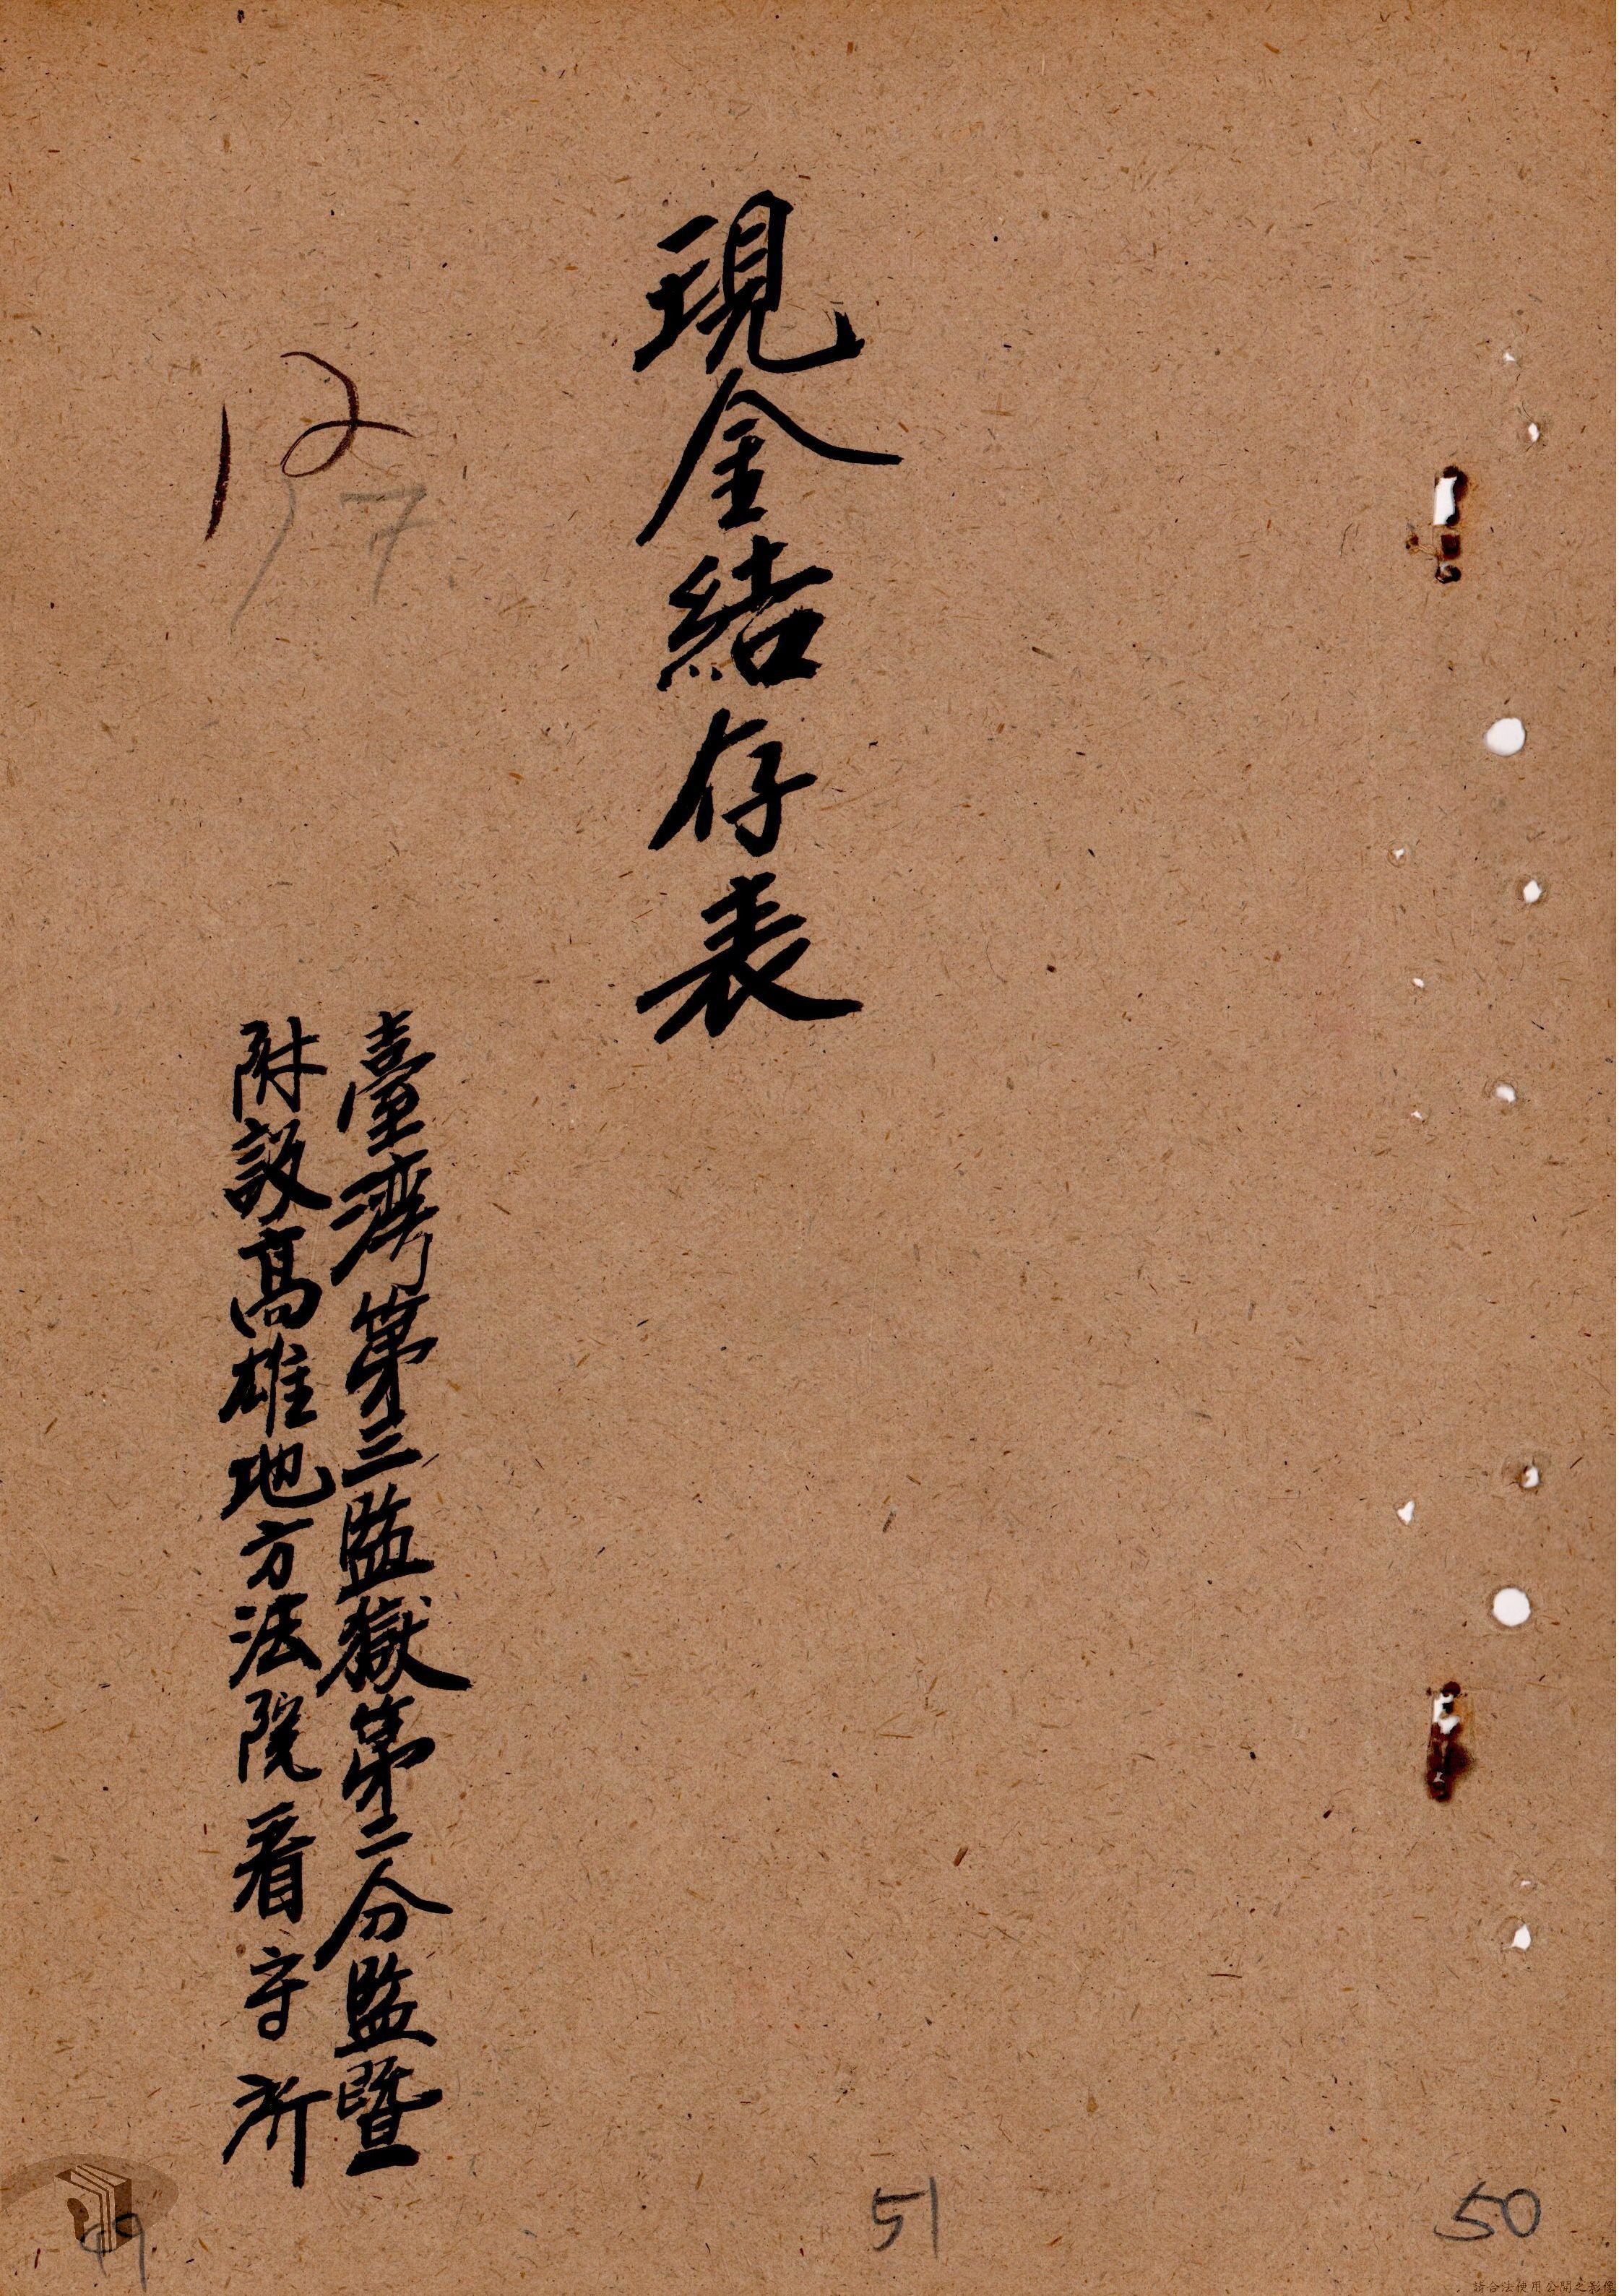 現金結存表
臺灣第三監獄第二分監暨
附設高雄地方法院看守所
12
17
51
50
49
請合法使用公開之影像